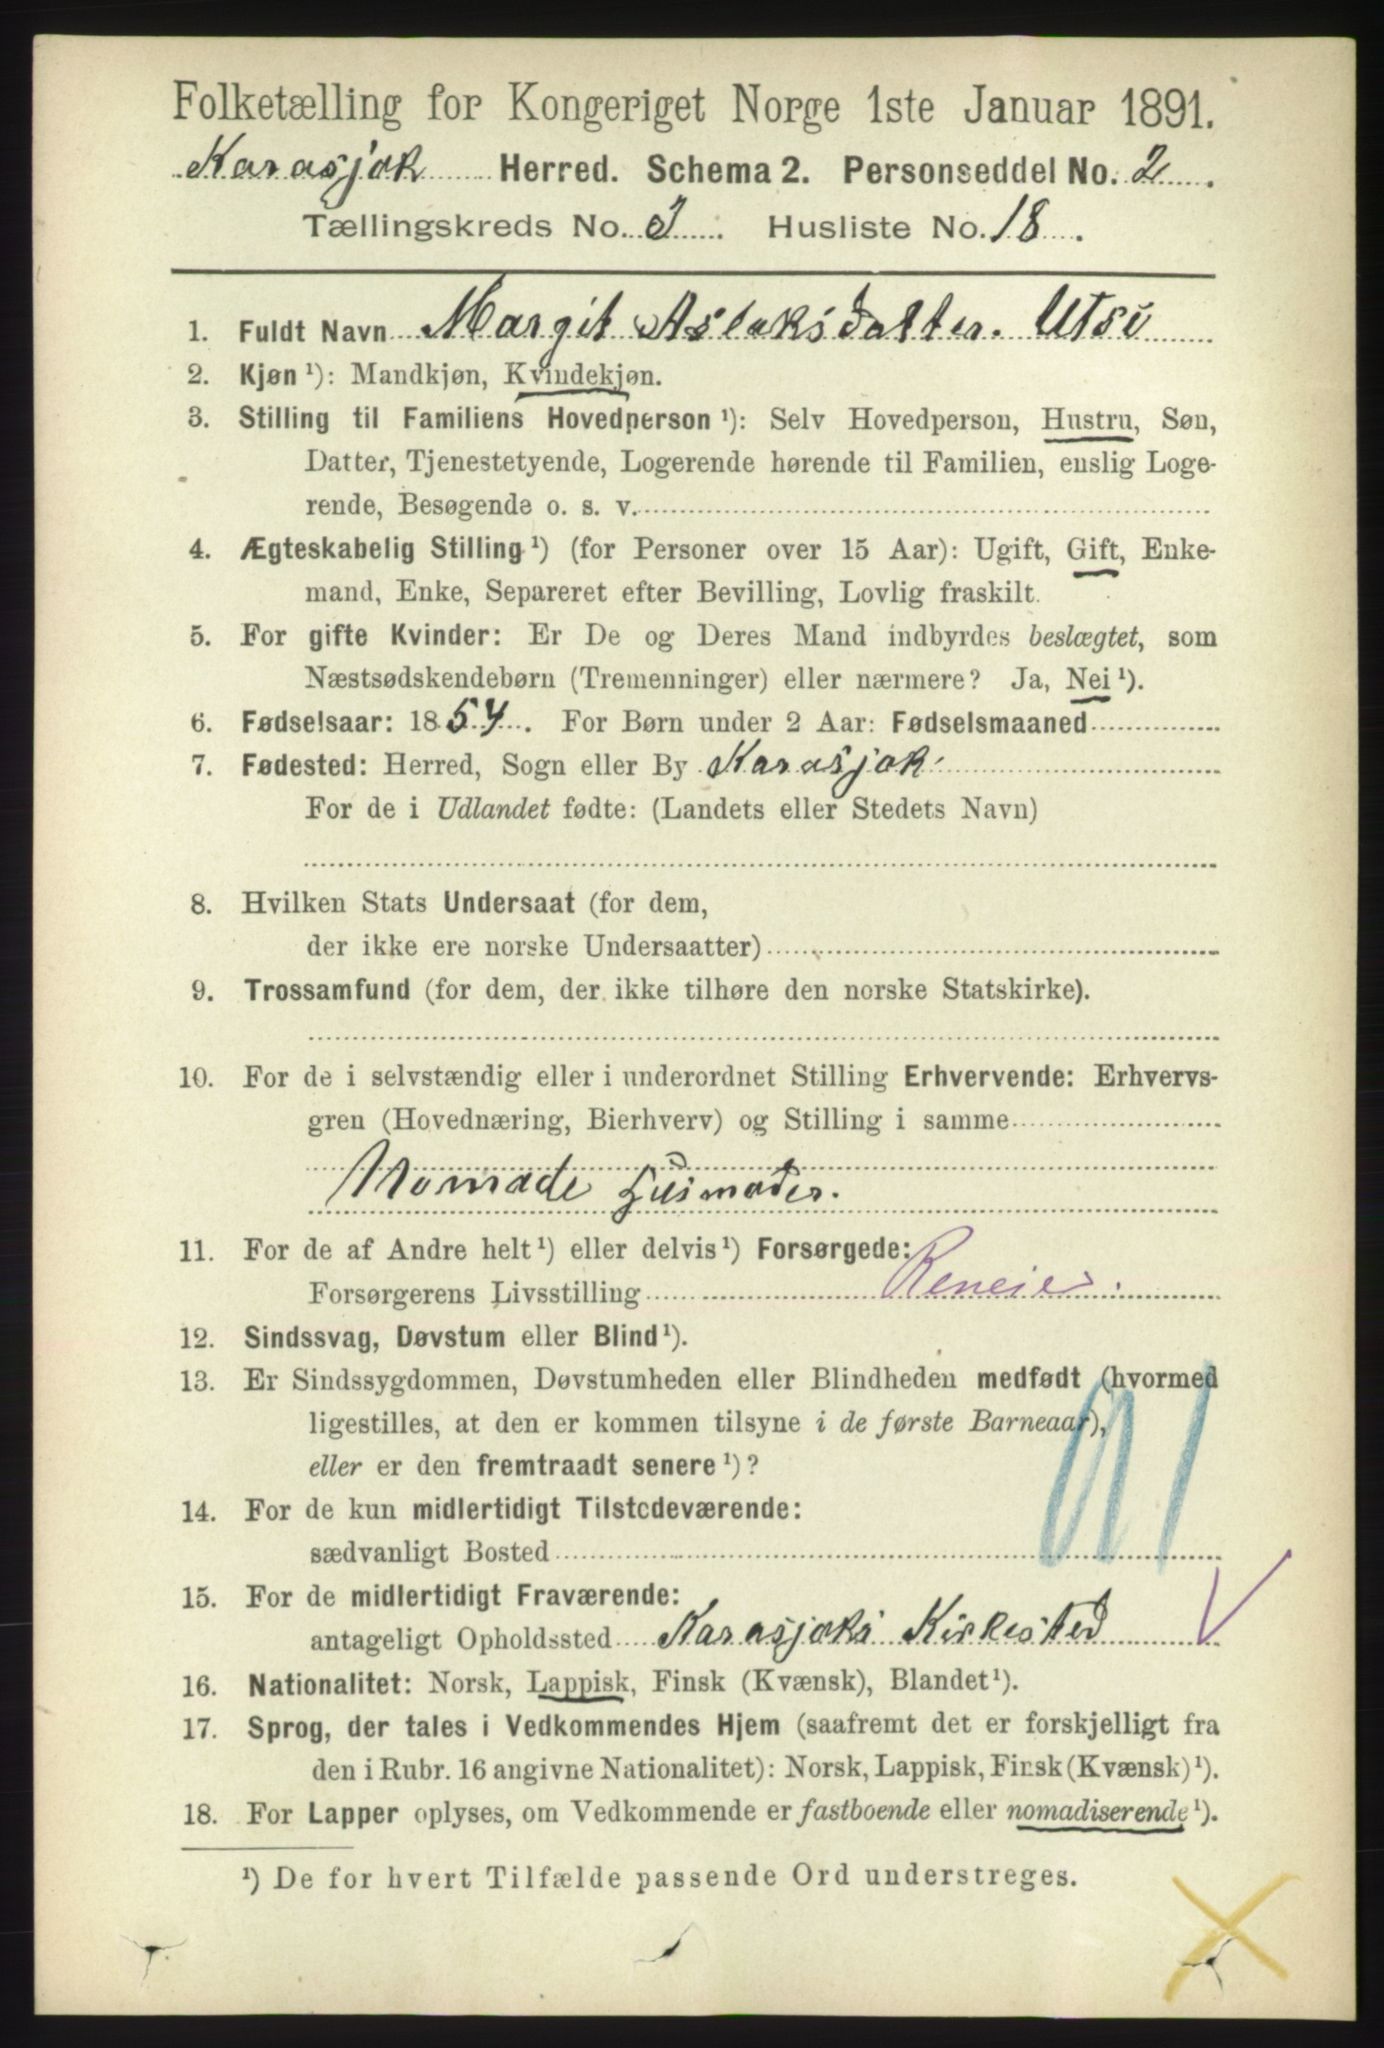 Folketælling for Kongeriget Norge 1ste Januar 1891.
Karasjok Herred. Schema 2. Personseddel No. 2.
Tællingskreds No. 3. Husliste No. 18.
1. Fuldt Navn Margit Aslaksdatter. Utsi
2. Kjøn ¹): Mandkjøn, Kvindekjøn.
3. Stilling til Familiens Hovedperson ¹): Selv Hovedperson, Hustru, Søn,
Datter, Tjenestetyende, Logerende hørende til Familien, enslig Loge-
rende, Besøgende o. s. v.
4. Ægteskabelig Stilling ¹) (for Personer over 15 Aar): Ugift, Gift, Enke-
mand, Enke, Separeret efter Bevilling, Lovlig fraskilt.
5. For gifte Kvinder: Er De og Deres Mand indbyrdes beslægtet, som
Næstsødskendebørn (Tremenninger) eller nærmere? Ja, Nei ¹).
6. Fødselsaar: 1854. For Børn under 2 Aar: Fødselsmaaned
7. Fødested: Herred, Sogn eller By Karasjok
For de i Udlandet fødte: (Landets eller Stedets Navn)
8. Hvilken Stats Undersaat (for dem,
der ikke ere norske Undersaatter)
9. Trossamfund (for dem, der ikke tilhøre den norske Statskirke).
10. For de i selvstændig eller i underordnet Stilling Erhvervende: Erhvervs-
gren (Hovednæring, Bierhverv) og Stilling i samme
Nomade Husmoder.
11. For de af Andre helt ¹) eller delvis ¹) Forsørgede:
Forsørgerens Livsstilling Reneier.
12. Sindssvag, Døvstum eller Blind ¹).
13. Er Sindssygdommen, Døvstumheden eller Blindheden medfødt (hvormed
ligestilles, at den er kommen tilsyne i de første Barneaar),
eller er den fremtraadt senere ¹)?
14. For de kun midlertidigt Tilstedeværende:
sædvanligt Bosted
15. For de midlertidigt Fraværende:
antageligt Opholdssted Karasjoks Kirkested
16. Nationalitet: Norsk, Lappisk, Finsk (Kvænsk), Blandet ¹).
17. Sprog, der tales i Vedkommendes Hjem (saafremt det er forskjelligt fra
den i Rubr. 16 angivne Nationalitet): Norsk, Lappisk, Finsk (Kvænsk) ¹).
18. For Lapper oplyses, om Vedkommende er fastboende eller nomadiserende ¹).
¹) De for hvert Tilfælde passende Ord understreges.